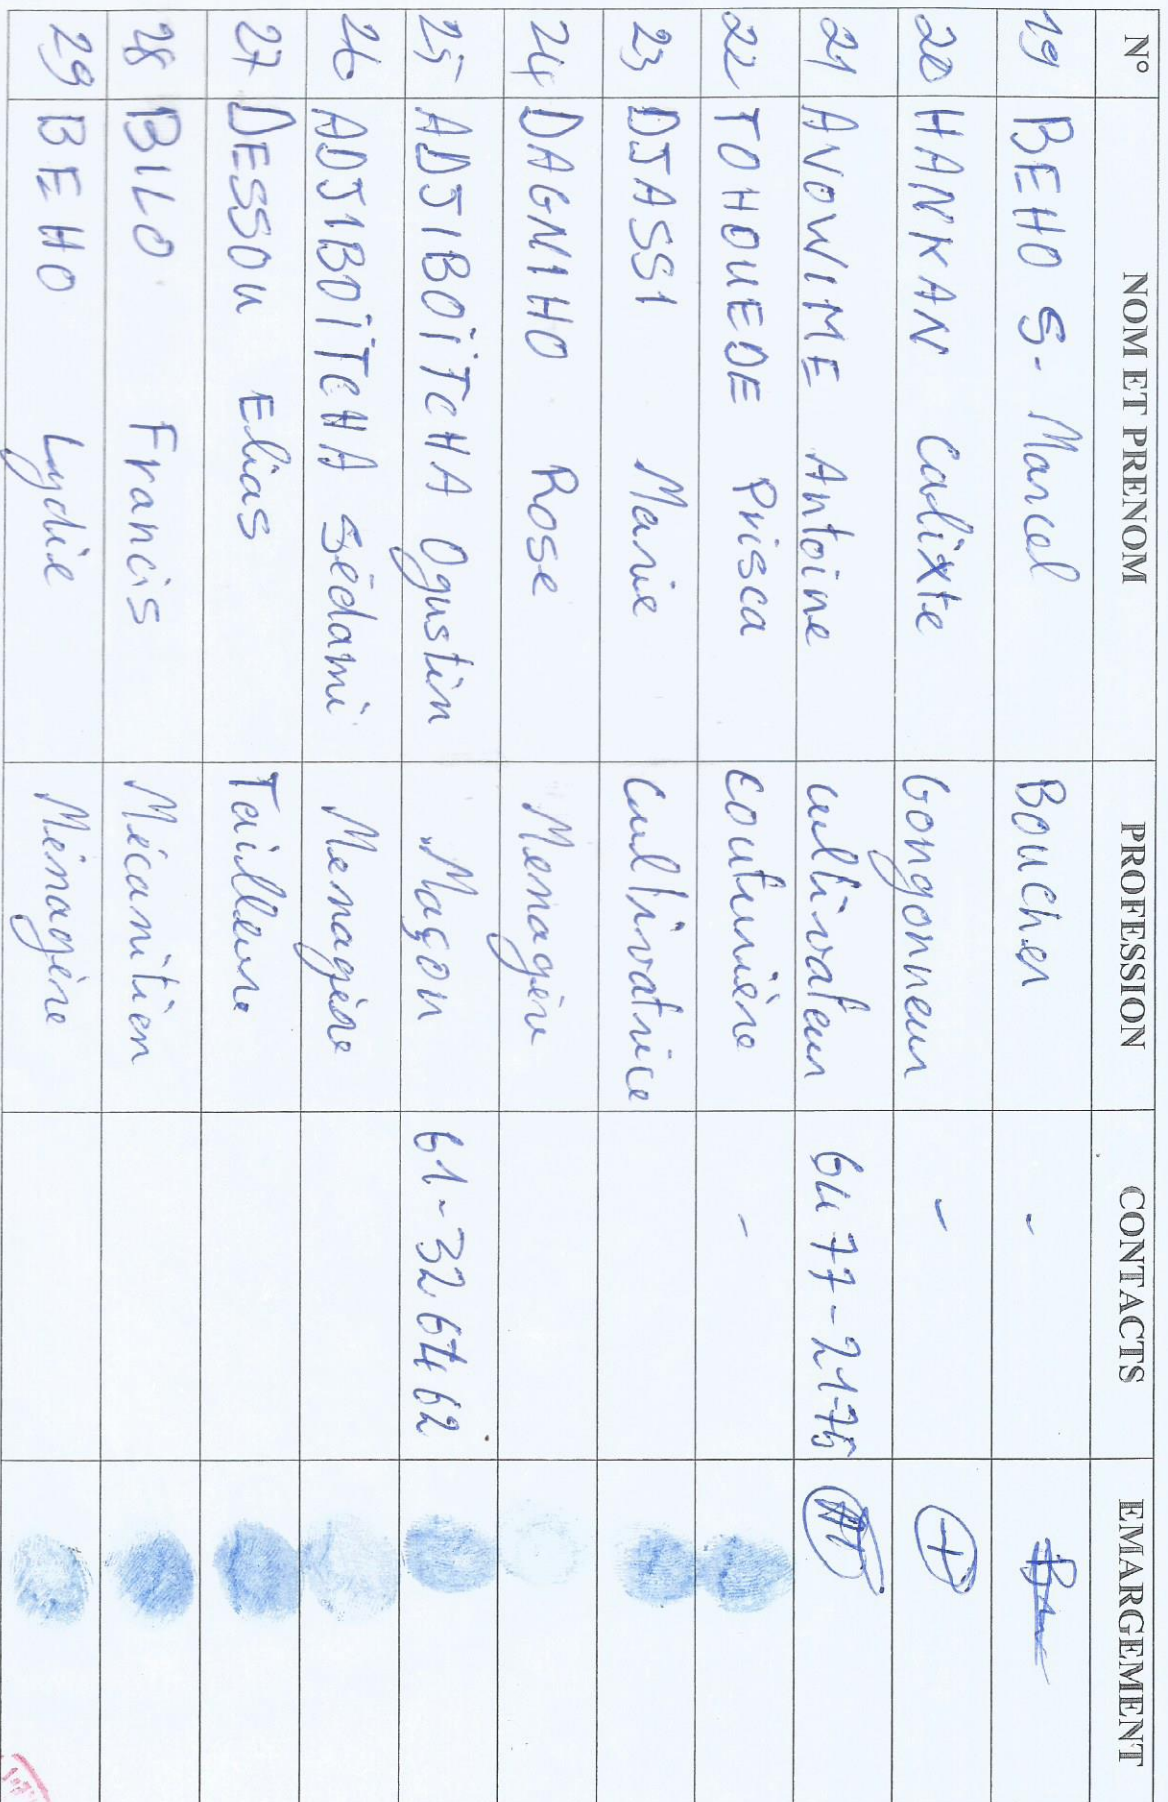 N° NOM ET PRENOM PROFESSION CONTACTS EMARGEMENT
19 BEHO S. Marcel Boucher -
20 HANKAN Calixte Gongonneur -
21 AVOWIME Antoine cultivateur 64 77-21-75
22 TOHOUEDE Prisca couturière -
23 DJASSI Marie Cultivatrice
24 DAGNIHO Rose Menagère
25 ADJIBOÏTCHA Ogustin Maçon 61-32 64 62
26 ADJIBOÏTCHA Sèdami Menagère
27 DESSOU Elias Tailleur
28 BILO Francis Mécanitien
29 BEHO Lydie Ménagère